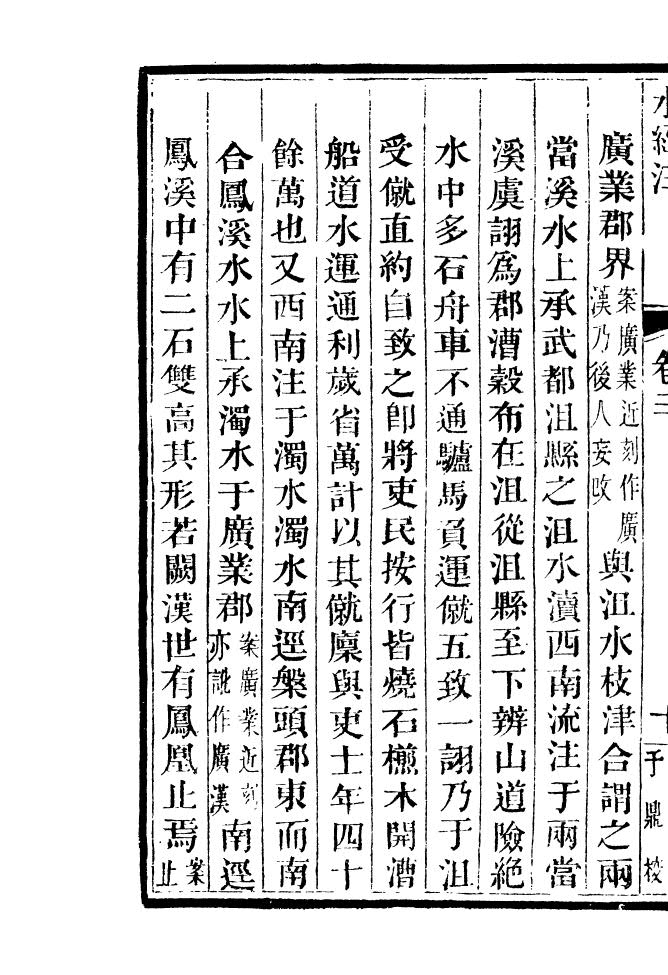 水經注 卷二 十 于鼎校
廣業郡界案廣業近刻作廣漢乃後人妄改與沮水枝津合謂之兩
當溪水上承武都沮縣之沮水瀆西南流注于兩當
溪虞詡爲郡漕穀布在沮從沮縣至下辨山道險絶
水中多石舟車不通驢馬負運僦五致一詡乃于沮
受僦直約自致之卽將吏民按行皆燒石櫵木開漕
船道水運通利歲省萬計以其僦廩與吏士年四十
餘萬也又西南注于濁水濁水南逕槃頭郡東而南
合鳳溪水水上承濁水于廣業郡案廣業近刻亦訛作廣漢南逕
鳳溪中有二石雙高其形若闕漢世有鳳凰止焉案止